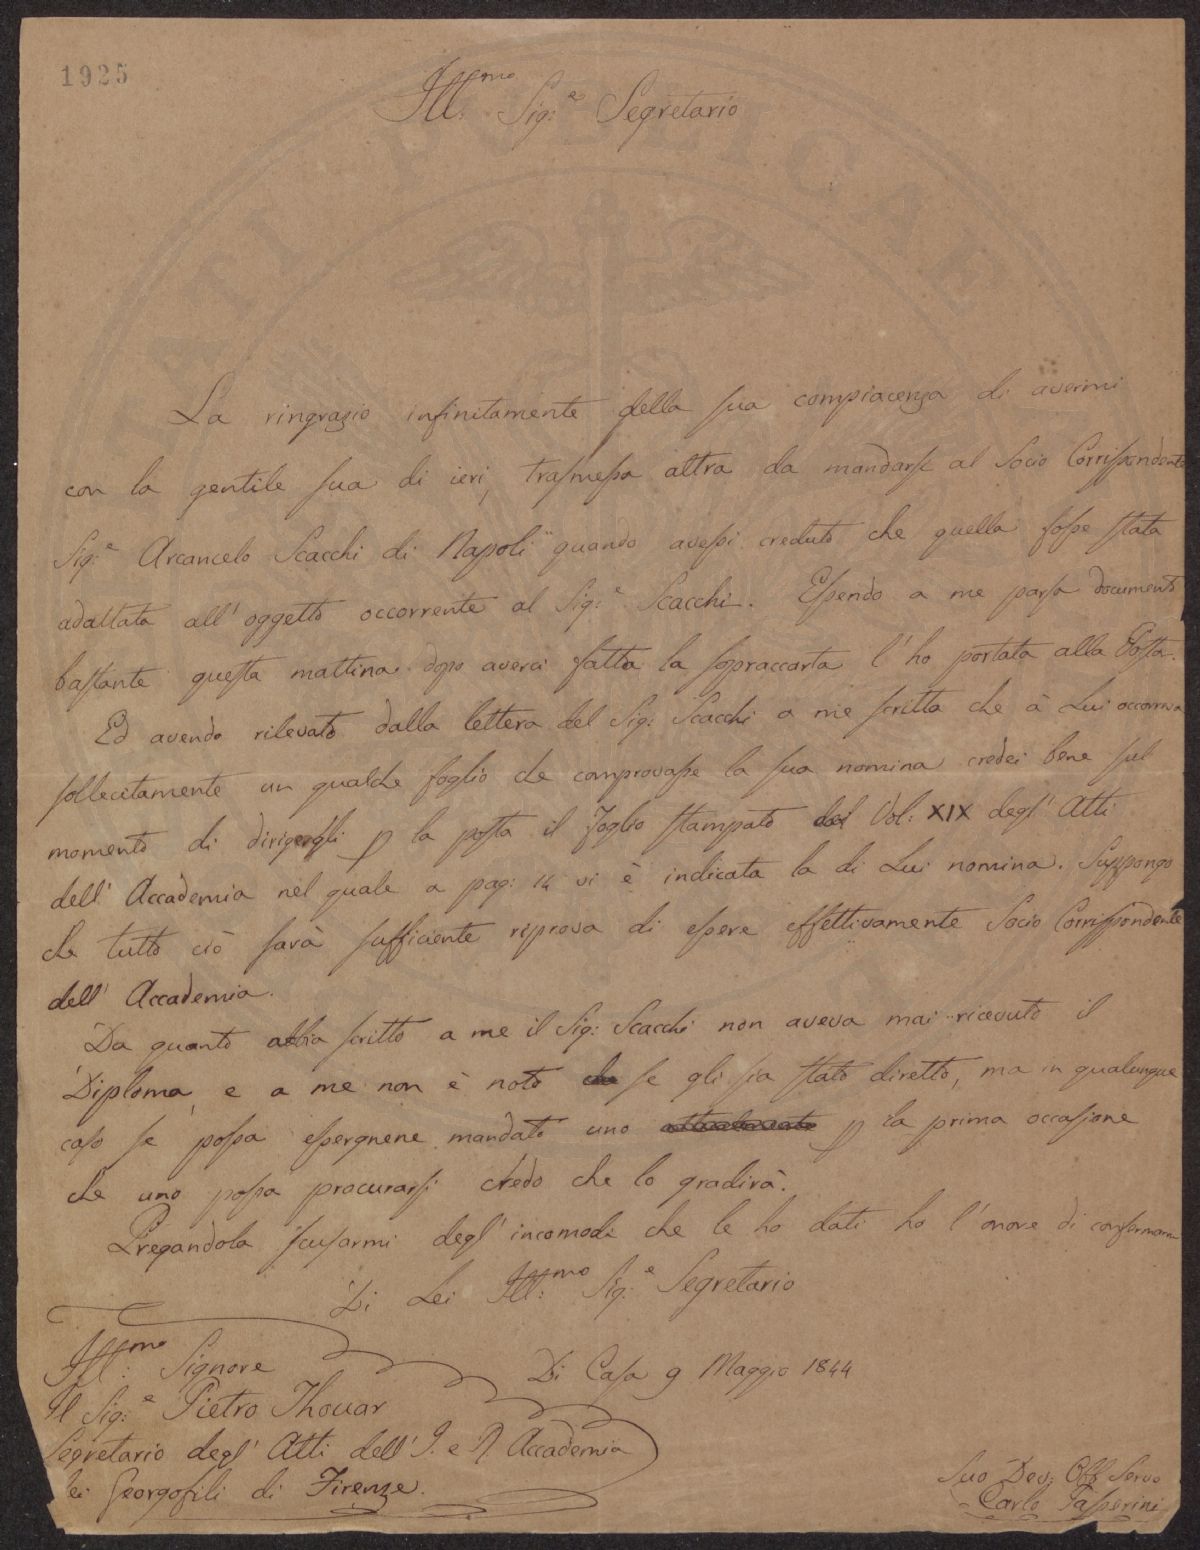 1925
Ill:mo Sig:e Segretario
La ringrazio infinitamente della sua compiacenza di avermi
con la gentile sua di ieri, trasmessa altra da mandarsi al Socio Corrispondente
Sig:e Arcancelo Scacchi di Napoli" quando avessi creduto che quella fosse stata
adattata all' oggetto occorrente al Sig:e Scacchi. Essendo a me parsa documento
bastante questa mattina dopo averci fatta la sopraccarta l' ho portata alla Posta.
Ed avendo rilevato dalla lettera del Sig: Scacchi a me scritta che à Lui occorreva
sollecitamente un qualche foglio che comprovasse la sua nomina credei bene sul
momento di dirigergli p la posta il Foglio stampato del Vol: XIX degl' Atti
dell' Accademia nel quale a pag: 14 vi è indicata la di Lui nomina. Suppongo
che tutto ciò sarà sufficiente riprova di essere effettivamente Socio Corrispondente
dell' Accademia.
Da quanto abbia scritto a me il Sig: Scacchi non aveva mai ricevuto il
Diploma, e a me non è noto che se gli sia stato diretto, ma in qualunque
caso se possa essergnene mandato uno p la prima occasione
che uno possa procurarsi credo che lo gradirà.
Pregandola scusarmi degl' incomodi che le ho dati ho l' onore di confermarmi
Di Lei Ill:mo Sig:e Segretario
Ill:mo Signore
Di Casa 9 Maggio 1844
Il Sig:e Pietro Thouar
Segretario degl' Atti dell' I. e R Accademia
dei Georgofili di Firenze.
Suo Dev: Obb Servo
Carlo Passerini
PUBLICAE